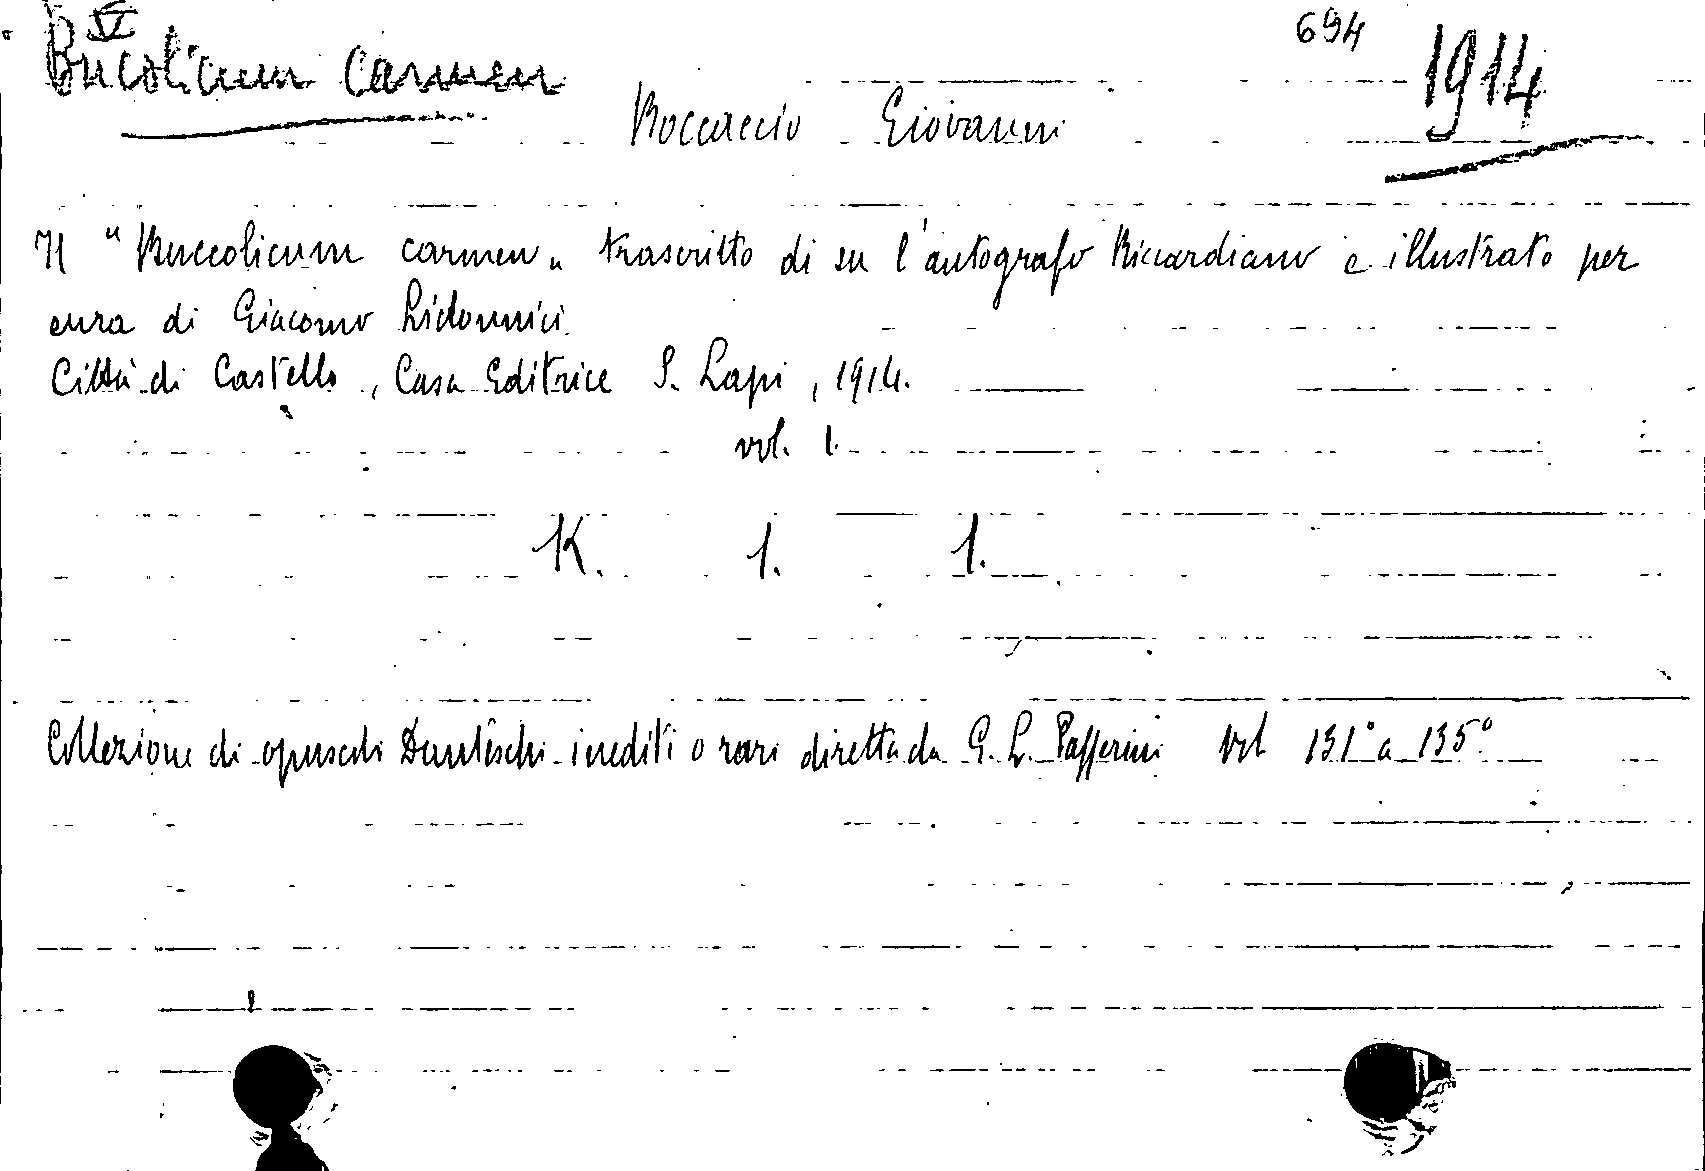 V
Bucolicum Carmen
694
1914
Boccaccio Giovanni
Il "Buccolicum carmen" trascritto di su l'autografo Riccardiano e illustrato per
cura di Giacomo Lidonnici.
Città di Castello, Casa Editrice S. Lapi, 1914.
vol. 1.
K. 1. 1.
Collezione di opuscoli Danteschi inediti o rari diretta da G. L. Passerini Vol 131° a 135°